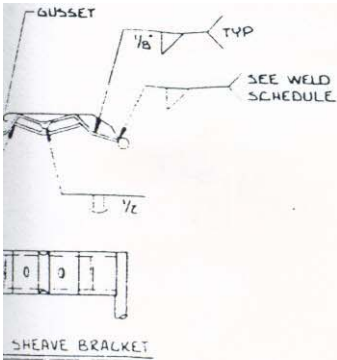 GUSSET
1/8" TYP
SEE WELD
SCHEDULE
1/2
SHEAVE BRACKET